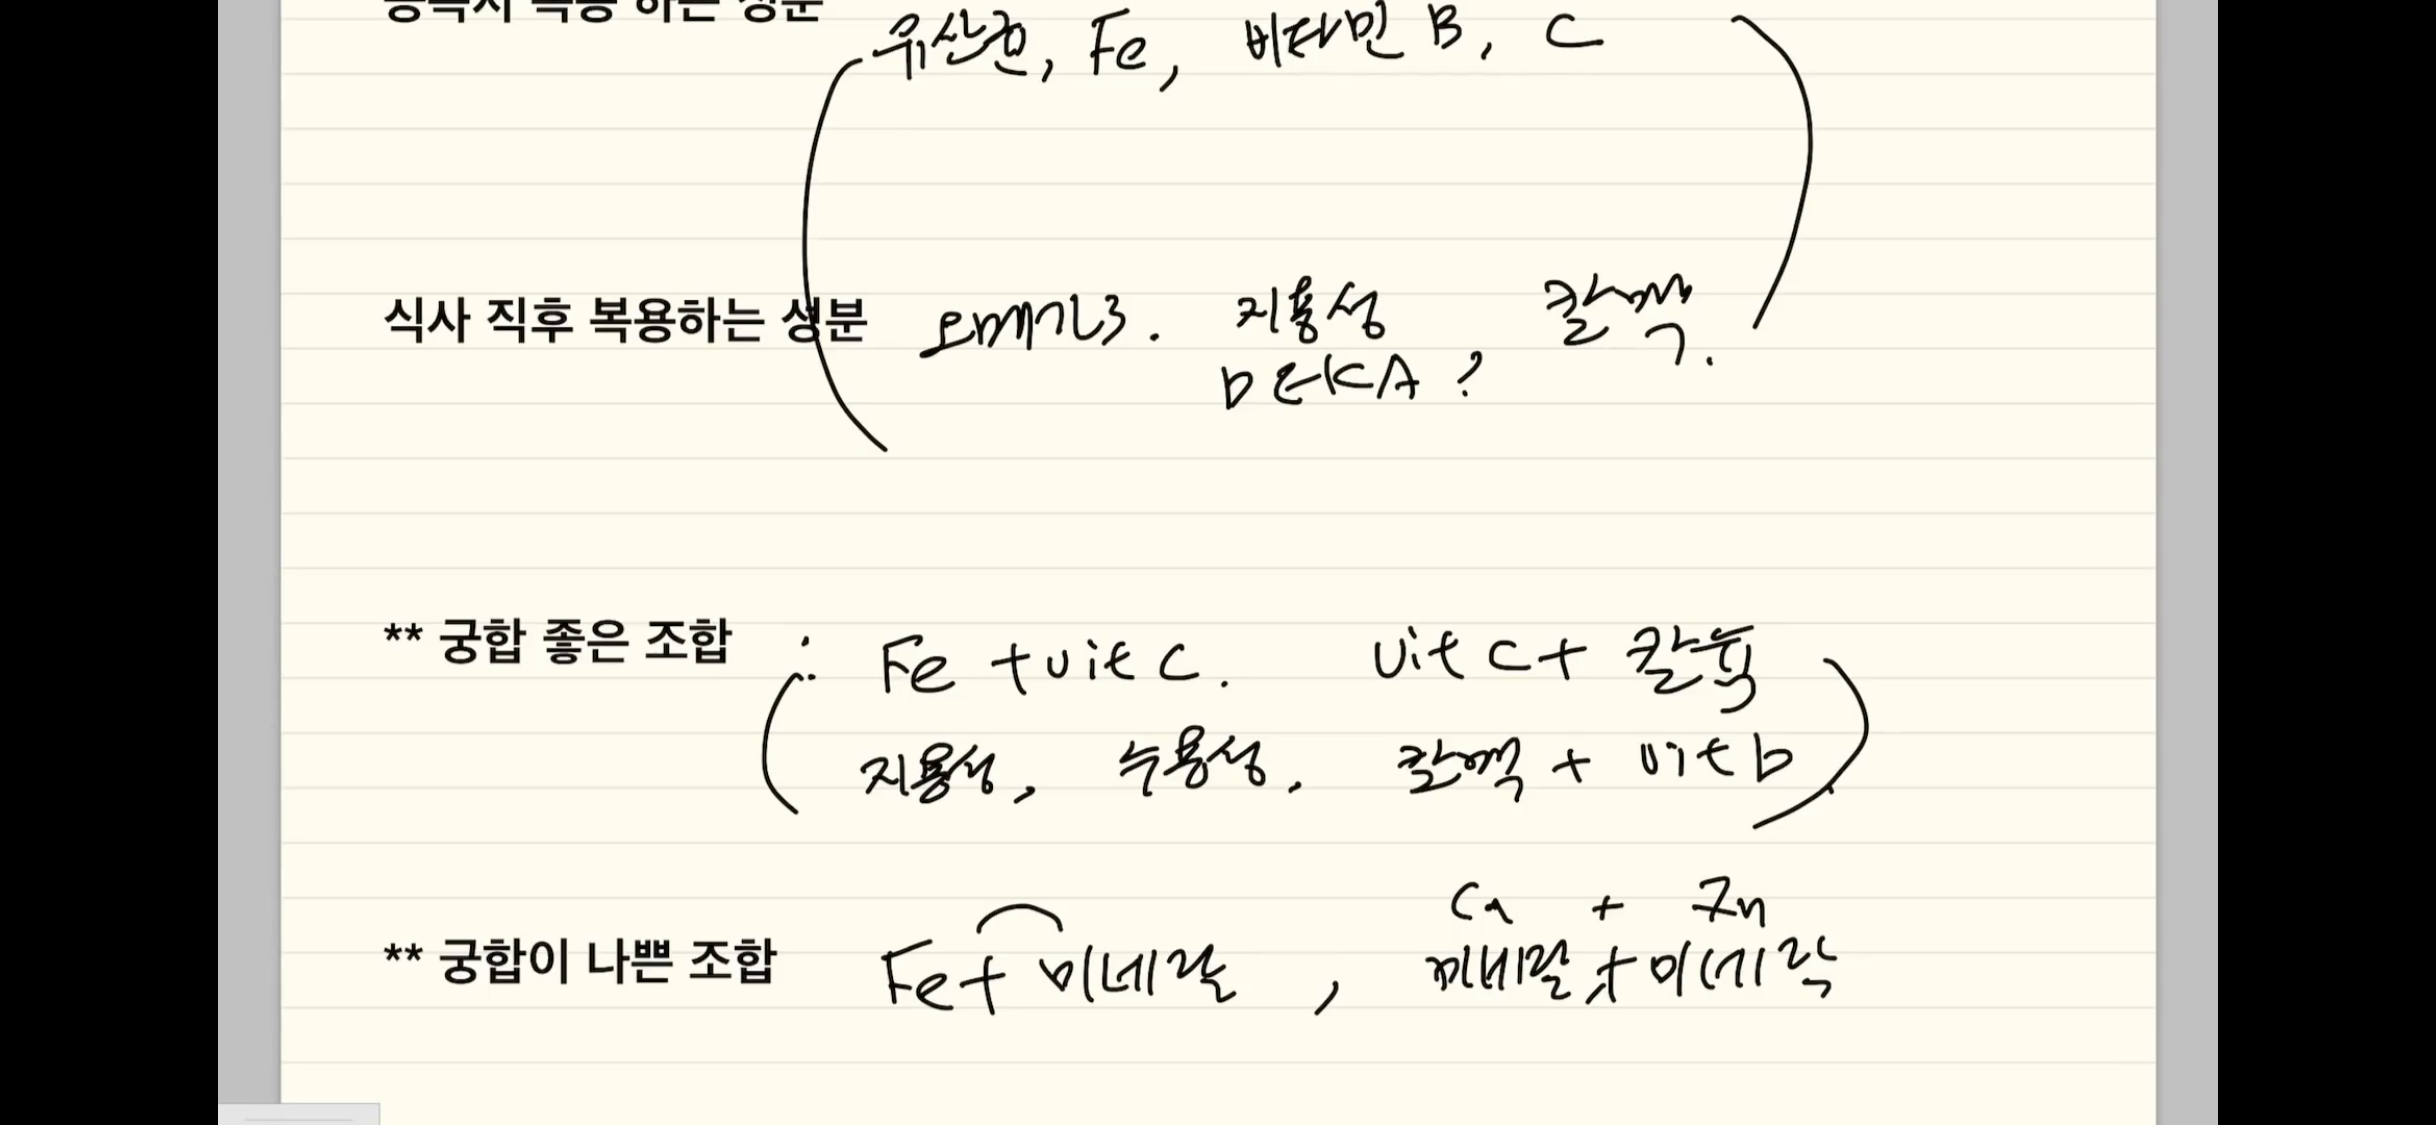 공복시 복용 하는 성분 유산균, Fe, 비타민 B, C
식사 직후 복용하는 성분 오메가3. 지용성 칼맥.
DEKA?
** 궁합 좋은 조합 : Fe + vit C. vit C +
지용성, 수용성. 칼맥 + vit D
Ca + Zn
** 궁합이 나쁜 조합 Fe + 미네랄, 미네랄 + 미네랄